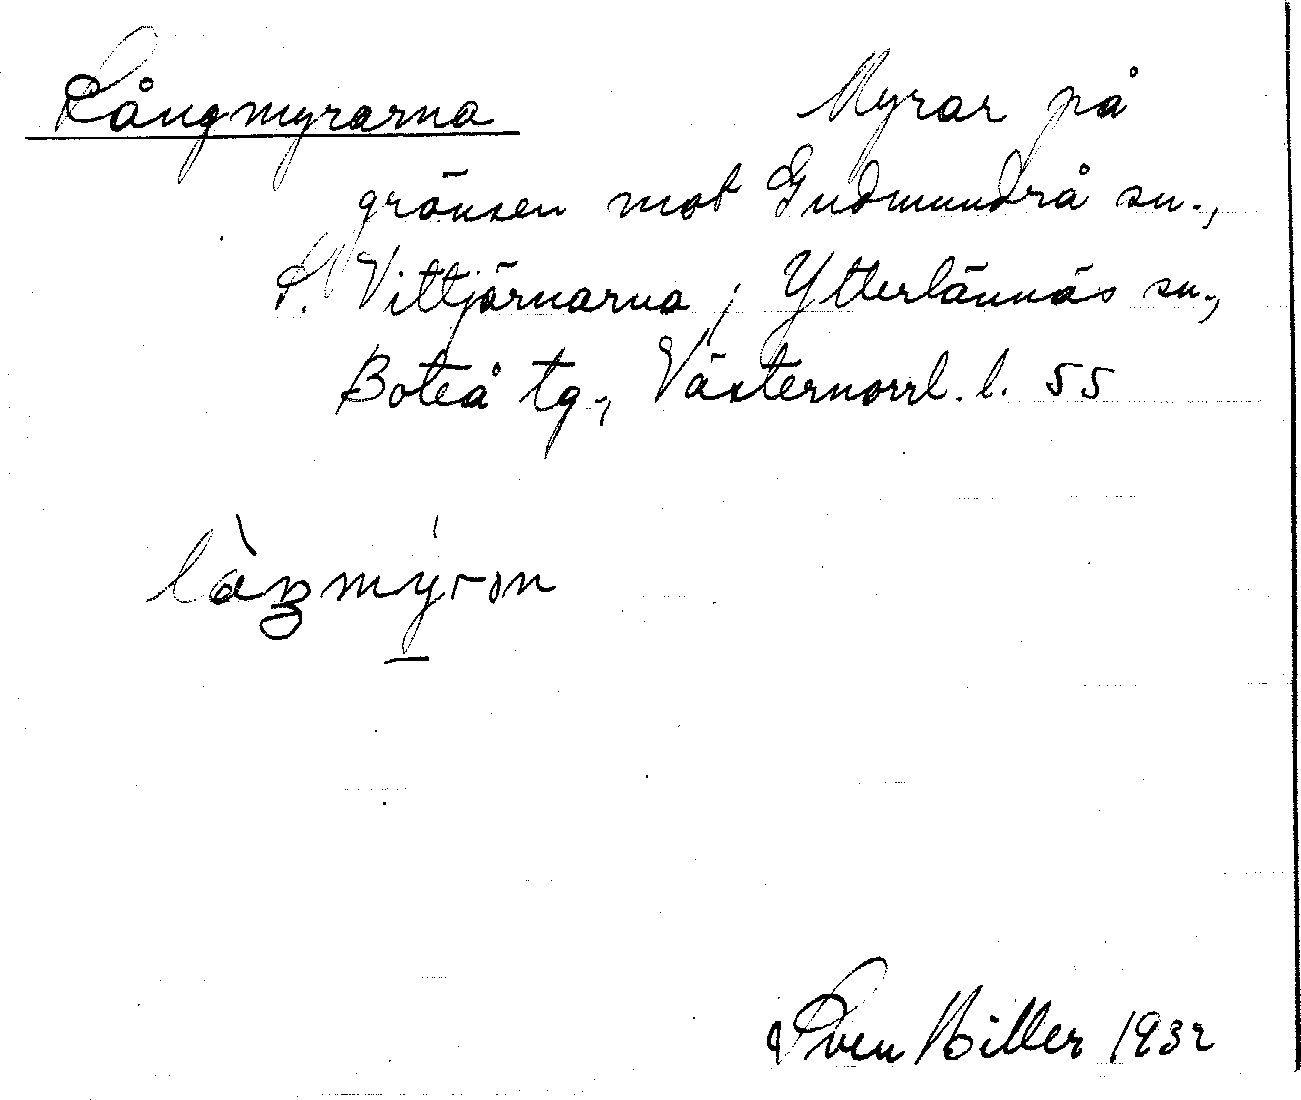 Långmyrarna Myrar på
gränsen mot Gudmundrå sn.,
S. Vittjärnarna, Ytterlännäs sn.,
Boteå tg., Västernorrl. l. 55
Sven 1932